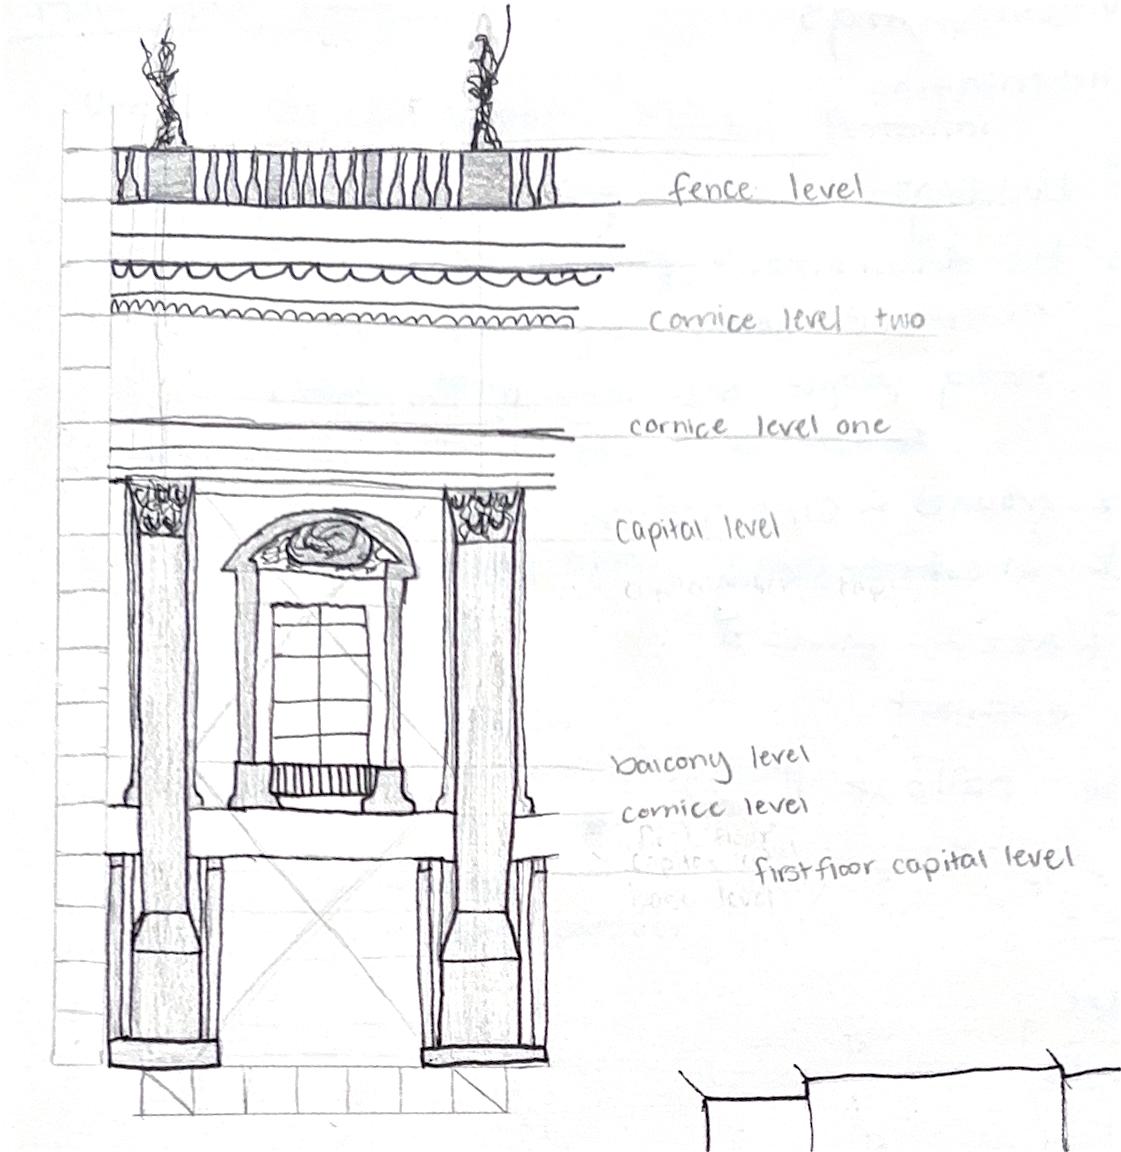 fence level
cornice level two
cornice level one
capital level
balcony level
cornice level
first floor capital level
base level